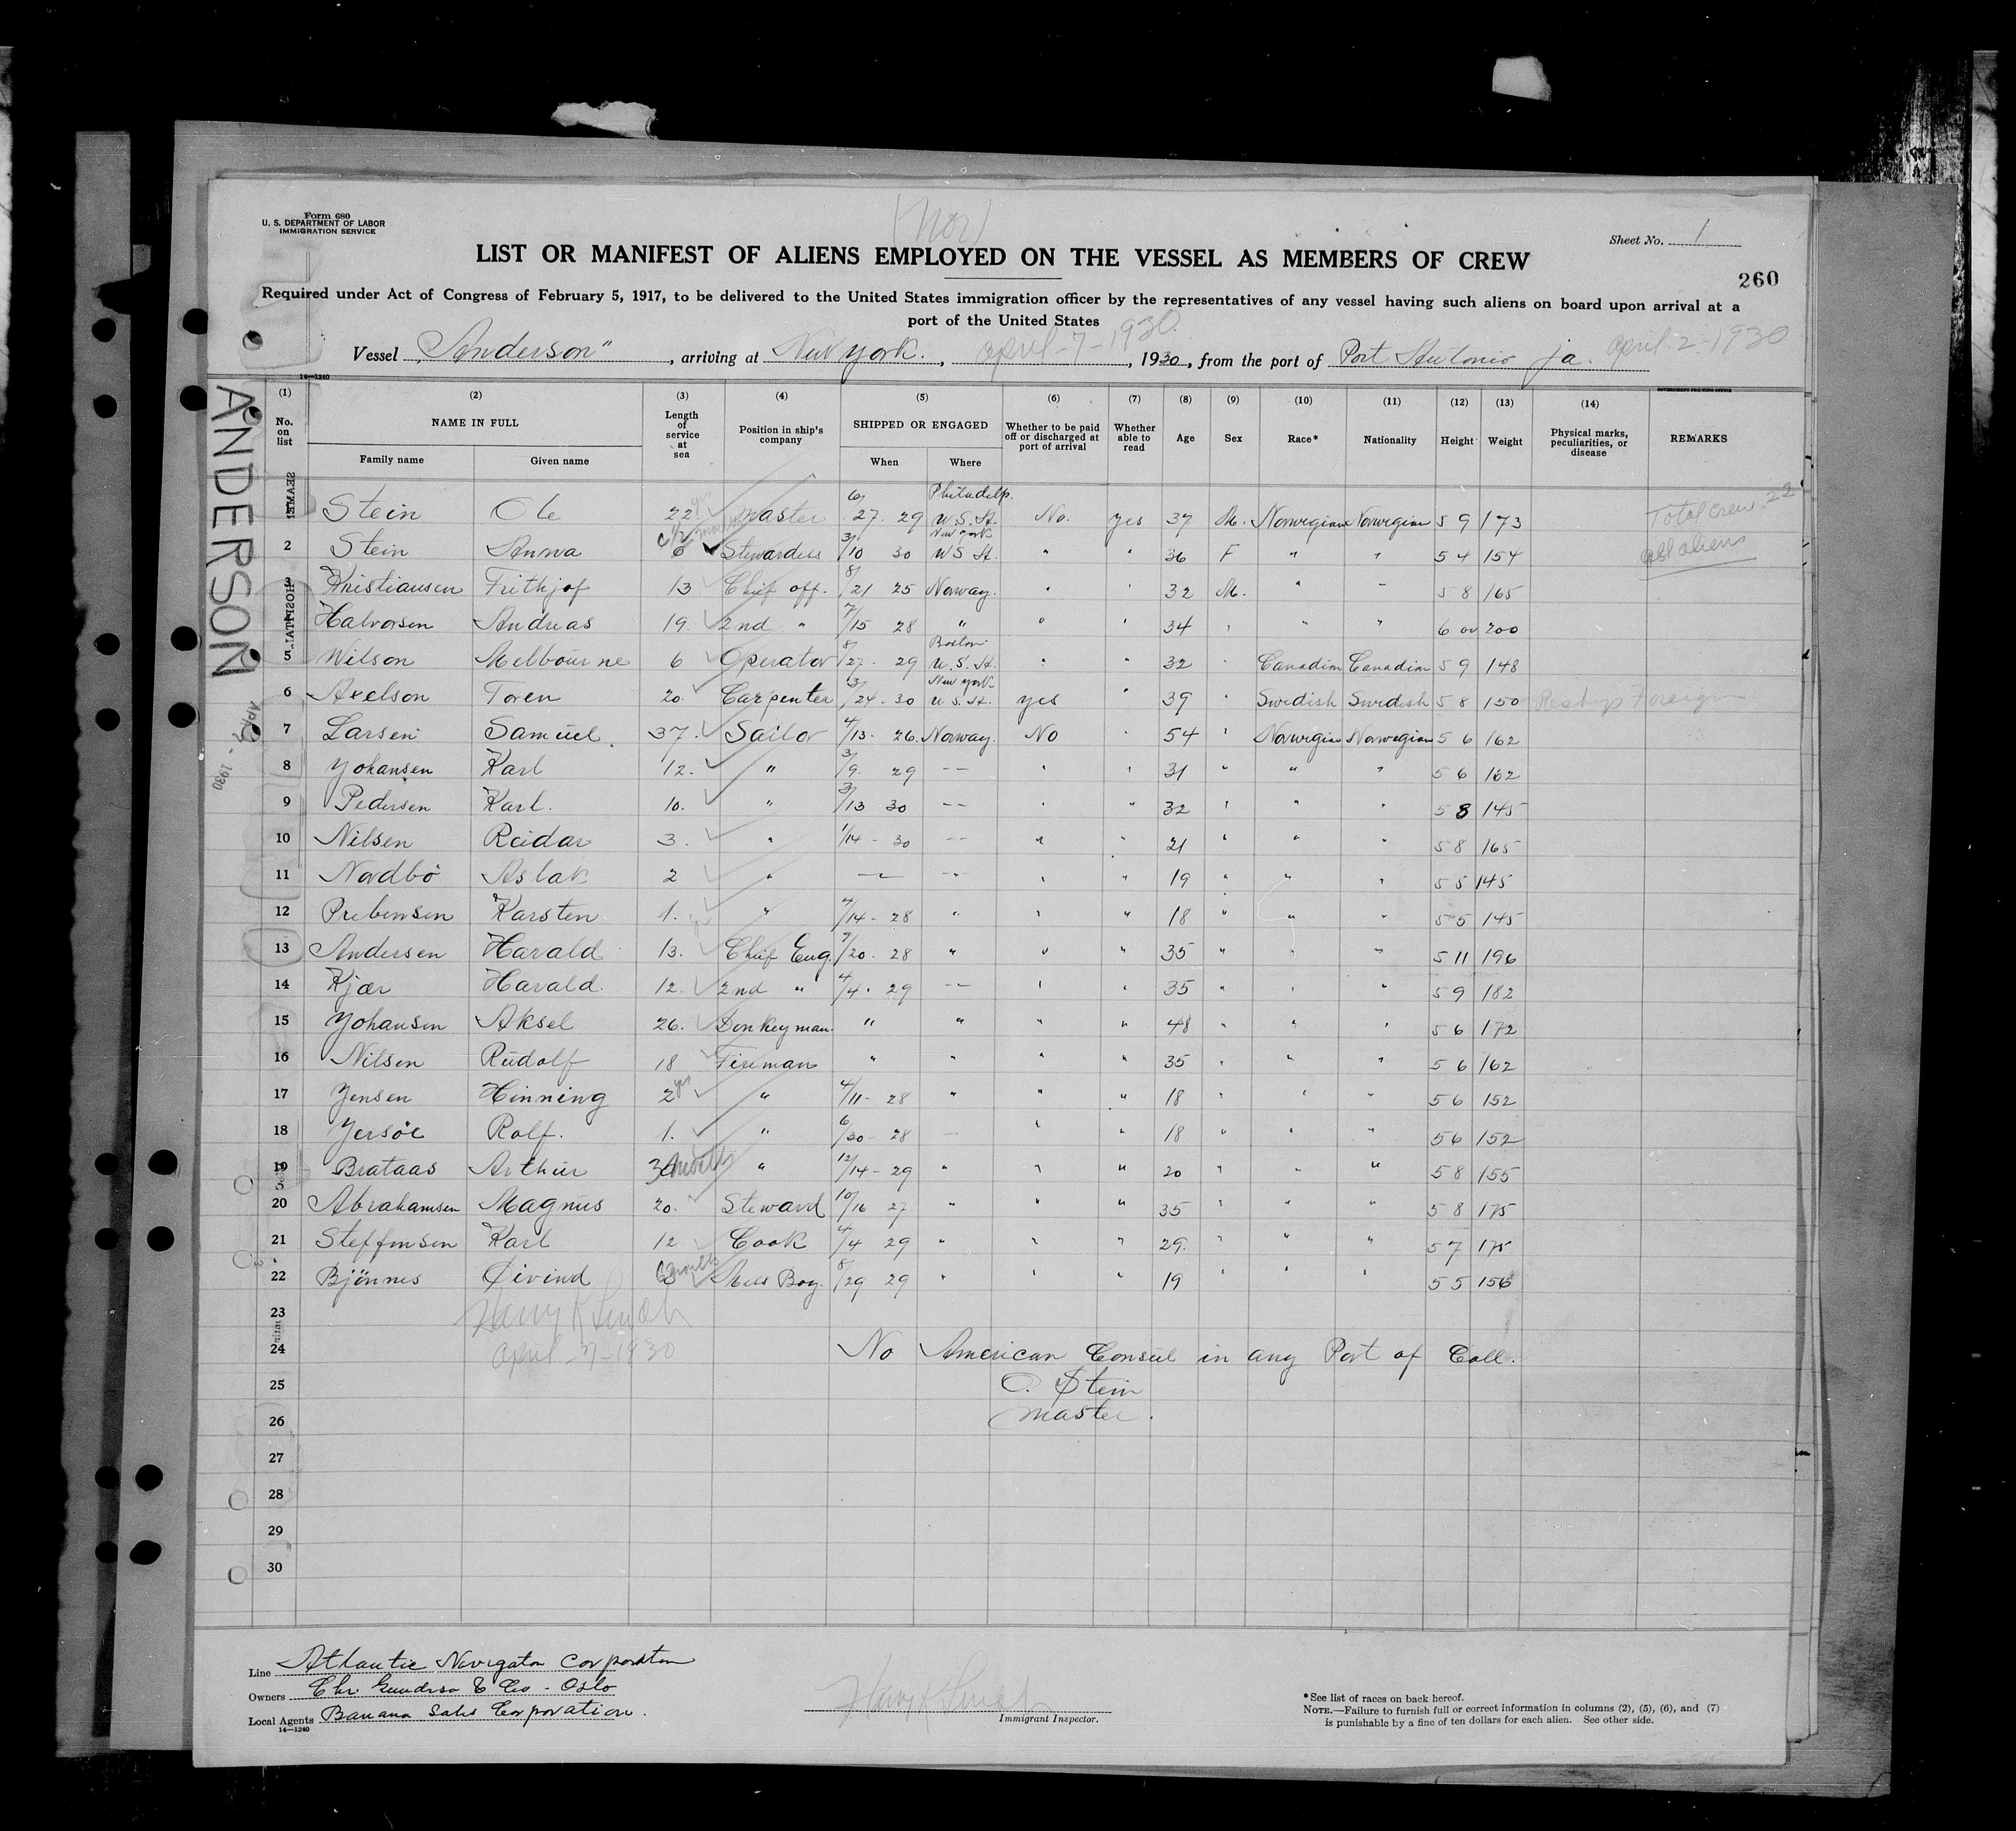 Form 680
U. S. DEPARTMENT OF LABOR
IMMIGRATION SERVICE
(Nor)
Sheet No. 1
LIST OR MANIFEST OF ALIENS EMPLOYED ON THE VESSEL AS MEMBERS OF CREW
260
Required under Act of Congress of February 5, 1917, to be delivered to the United States immigration officer by the representatives of any vessel having such aliens on board upon arrival at a
port of the United States
Vessel "Anderson", arriving at New York., april-7-1930, 1930, from the port of Port Antonio Ja. april-2-1930
14—1240
GOVERNMENT PRINTING OFFICE
(1) (2) (3) (4) (5) (6) (7) (8) (9) (10) (11) (12) (13) (14)
No. on list NAME IN FULL Length of service at sea Position in ship's company SHIPPED OR ENGAGED Whether to be paid off or discharged at port of arrival Whether able to read Age Sex Race* Nationality Height Weight Physical marks, peculiarities, or disease REMARKS
Family name Given name When Where
ANDERSON
SEAMEN
HOSPITAL
APR 7 - 1930
Stein Ole 22 yrs master 6/27. 29 Philadelp. U.S.A. No. yes 37 M. Norwegian Norwegian 5 9 173 Total crew. 22
2 Stein Anna 6 Stewardess 3/10 30 New York U S A. " " 36 F " " 5 4 154 all aliens
3 Kristiansen Frithjof 13 Chief off. 8/21 25 Norway. " " 32 M. " " 5 8 165
4 Halvorsen Andreas 19. 2nd " 7/15 28 " " " 34 " " " 6 00 200
5 Wilson Melbourne 6 Operator 8/27. 29 Boston U.S.A. " " 32 " Canadian Canadian 5 9 148
6 Axelson Toren 20. Carpenter 3/24-30 New York U.S.A. yes " 39 " Swedish Swedish 5 8 150 Reship Foreign
7 Larsen Samuel. 37. Sailor 4/13. 26. Norway. No " 54 " Norwegian Norwegian 5 6 162
8 Yohansen Karl 12. " 3/9. 29 -- " " 31 " " " 5 6 162
9 Pedersen Karl. 10. " 3/13 30 -- " " 32 " " " 5 8 145
10 Nilsen Reidar 3. " 1/14 - 30 -- " " 21 " " " 5 8 165
11 Nordbö Aslak 2 " -- -- " " 19 " " " 5 5 145
12 Prebensen Karsten 1. " 4/14 - 28 " " " 18 " " " 5-5 145
13 Andersen Harald 13. Chief Eng. 7/20. 28 " " " 35 " " " 5 11 196
14 Kjær Harald. 12. 2nd " 4/4. 29 -- " " 35 " " " 5 9 182
15 Yohansen Aksel 26. Donkeyman. " " " " 48 " " " 5 6 172
16 Nilsen Rudolf 18 Fireman " " " " 35 " " " 5 6 162
17 Yensen Hinning 2 yrs " 4/11- 28 " " " 18 " " " 5 6 152
18 Yersöe Rolf. 1. " 6/30- 28 - " " 18 " " " 5 6 152
19 Brataas Arthur 3 months " 12/14 - 29 " " " 20 " " " 5 8 155
20 Abrahamsen Magnus 20. Steward 10/16 27 " " " 35 " " " 5 8 175
21 Steffensen Karl 12 Cook 4/4 29 " " " 29. " " " 5 7 175
22 Bjönnes Øivind months Mess Boy. 8/29 29 " " " 19 " " " 5 5 156
23 Harry K Smith
24 april-7-1930 No American Consul in any Port of Call.
25 O. Stein
26 master.
27
28
29
30
Line Atlantic Navigation Corporation
Owners Chr. Gundersen & Co - Oslo
Local Agents Banana Sales Corporation.
14—1240
Harry K Smith
Immigrant Inspector.
*See list of races on back hereof.
NOTE.—Failure to furnish full or correct information in columns (2), (5), (6), and (7)
is punishable by a fine of ten dollars for each alien. See other side.